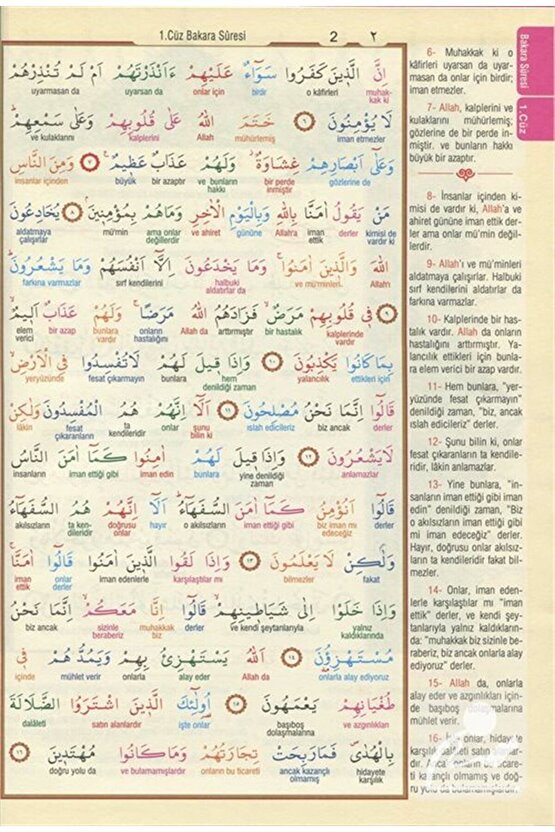 1.Cüz Bakara Sûresi
2
٢
اِنَّ الَّذ۪ينَ كَفَرُوا سَوَٓاءٌ عَلَيْهِمْ ءَاَنْذَرْتَهُمْ اَمْ لَمْ تُنْذِرْهُمْ
muhakkak ki o kâfirleri birdir onlar için uyarsan da uyarmasan da
لَا يُؤْمِنُونَ ﴿٦﴾ خَتَمَ اللّٰهُ عَلٰى قُلُوبِهِمْ وَعَلٰى سَمْعِهِمْۜ
iman etmezler mühürlemiş Allah kalplerini ve kulaklarını
وَعَلٰٓى اَبْصَارِهِمْ غِشَاوَةٌۘ وَلَهُمْ عَذَابٌ عَظ۪يمٌ۟ ﴿٧﴾ وَمِنَ النَّاسِ
gözlerine de bir perde inmiştir ve bunların hakkı bir azaptır büyük insanlar içinden
مَنْ يَقُولُ اٰمَنَّا بِاللّٰهِ وَبِالْيَوْمِ الْاٰخِرِ وَمَاهُمْ بِمُؤْمِن۪ينَۢ ﴿٨﴾ يُخَادِعُونَ
kimisi de vardır ki derler iman ettik Allah'a gününe ve ahiret ama onlar değillerdir mü'min aldatmaya çalışırlar
اللّٰهَ وَالَّذ۪ينَ اٰمَنُواۚ وَمَا يَخْدَعُونَ اِلَّٓا اَنْفُسَهُمْ وَمَا يَشْعُرُونَۜ
Allah'ı ve mü'minleri halbuki aldatırlar da sırf kendilerini farkına varmazlar
﴿٩﴾ ف۪ي قُلُوبِهِمْ مَرَضٌۙ فَزَادَهُمُ اللّٰهُ مَرَضًاۚ وَلَهُمْ عَذَابٌ اَل۪يمٌۙ
kalplerinde vardır bir hastalık arttırmıştır Allah da onların hastalığını bunlara vardır bir azap elem verici
بِمَا كَانُوا يَكْذِبُونَ ﴿١٠﴾ وَاِذَا ق۪يلَ لَهُمْ لَا تُفْسِدُوا فِي الْاَرْضِۙ
ettikleri için yalancılık hem denildiği zaman bunlara fesat çıkarmayın yeryüzünde
قَالُٓوا اِنَّمَا نَحْنُ مُصْلِحُونَ ﴿١١﴾ اَلَٓا اِنَّهُمْ هُمُ الْمُفْسِدُونَ وَلٰكِنْ
derler biz ancak ıslah edicileriz şunu bilin ki onlar ta kendileridir fesat çıkaranların lâkin
لَا يَشْعُرُونَ ﴿١٢﴾ وَاِذَا ق۪يلَ لَهُمْ اٰمِنُوا كَمَٓا اٰمَنَ النَّاسُ
anlamazlar yine denildiği zaman bunlara iman edin iman ettiği gibi insanların
قَالُٓوا اَنُؤْمِنُ كَمَٓا اٰمَنَ السُّفَهَٓاءُۜ اَلَٓا اِنَّهُمْ هُمُ السُّفَهَٓاءُ
derler biz iman mı edeceğiz iman ettiği gibi o akılsızların hayır doğrusu onlar ta kendileridir akılsızların
وَلٰكِنْ لَا يَعْلَمُونَ ﴿١٣﴾ وَاِذَا لَقُوا الَّذ۪ينَ اٰمَنُوا قَالُٓوا اٰمَنَّاۚ
fakat bilmezler karşılaştılar mı iman edenlerle derler iman ettik
وَاِذَا خَلَوْا اِلٰى شَيَاط۪ينِهِمْۙ قَالُٓوا اِنَّا مَعَكُمْۙ اِنَّمَا نَحْنُ
yalnız kaldıklarında ve kendi şeytanlarıyla derler muhakkak biz sizinle beraberiz biz ancak
مُسْتَهْزِؤُ۫نَ ﴿١٤﴾ اَللّٰهُ يَسْتَهْزِئُ بِهِمْ وَيَمُدُّهُمْ ف۪ي
onlarla alay ediyoruz Allah da alay eder onlarla mühlet verir içinde
طُغْيَانِهِمْ يَعْمَهُونَ ﴿١٥﴾ اُو۬لٰٓئِكَ الَّذ۪ينَ اشْتَرَوُا الضَّلَالَةَ
ve azgınlıkları başıboş dolaşmalarına işte onlar satın alanlardır dalâleti
بِالْهُدٰىۖ فَمَا رَبِحَتْ تِجَارَتُهُمْ وَمَا كَانُوا مُهْتَد۪ينَ ﴿١٦﴾
hidayete karşılık ancak kazançlı olmamış onların bu ticareti ve bulamamışlardır doğru yolu da
6- Muhakkak ki o
kâfirleri uyarsan da uyar-
masan da onlar için birdir;
iman etmezler.
7- Allah, kalplerini ve
kulaklarını mühürlemiş;
gözlerine de bir perde in-
miştir. ve bunların hakkı
büyük bir azaptır.
8- İnsanlar içinden ki-
misi de vardır ki, Allah'a ve
ahiret gününe iman ettik der-
ler ama onlar mü'min değil-
lerdir.
9- Allah'ı ve mü'minleri
aldatmaya çalışırlar. Halbuki
sırf kendilerini aldatırlar da
farkına varmazlar.
10- Kalplerinde bir has-
talık vardır. Allah da onların
hastalığını arttırmıştır. Ya-
lancılık ettikleri için bunla-
ra elem verici bir azap vardır.
11- Hem bunlara, "yer-
yüzünde fesat çıkarmayın"
denildiği zaman, "biz, ancak
ıslah edicileriz" derler.
12- Şunu bilin ki, onlar
fesat çıkaranların ta kendile-
ridir, lâkin anlamazlar.
13- Yine bunlara, "in-
sanların iman ettiği gibi iman
edin" denildiği zaman, "Biz
o akılsızların iman ettiği gibi
mi iman edeceğiz" derler.
Hayır, doğrusu onlar akılsız-
ların ta kendileridir fakat bil-
mezler.
14- Onlar, iman eden-
lerle karşılaştılar mı "iman
ettik" derler, ve kendi şey-
tanlarıyla yalnız kaldıkların-
da: "muhakkak biz sizinle be-
raberiz, biz ancak onlarla alay
ediyoruz" derler.
15- Allah da, onlarla
alay eder ve azgınlıkları için-
de başıboş dolaşmalarına
mühlet verir.
16- İşte onlar, hidayete
karşılık dalâleti satın alanlar-
dır. Ancak onların bu ticare-
ti kazançlı olmamış ve doğ-
ru yolu da bulamamışlardır.
Bakara Sûresi
1.Cüz